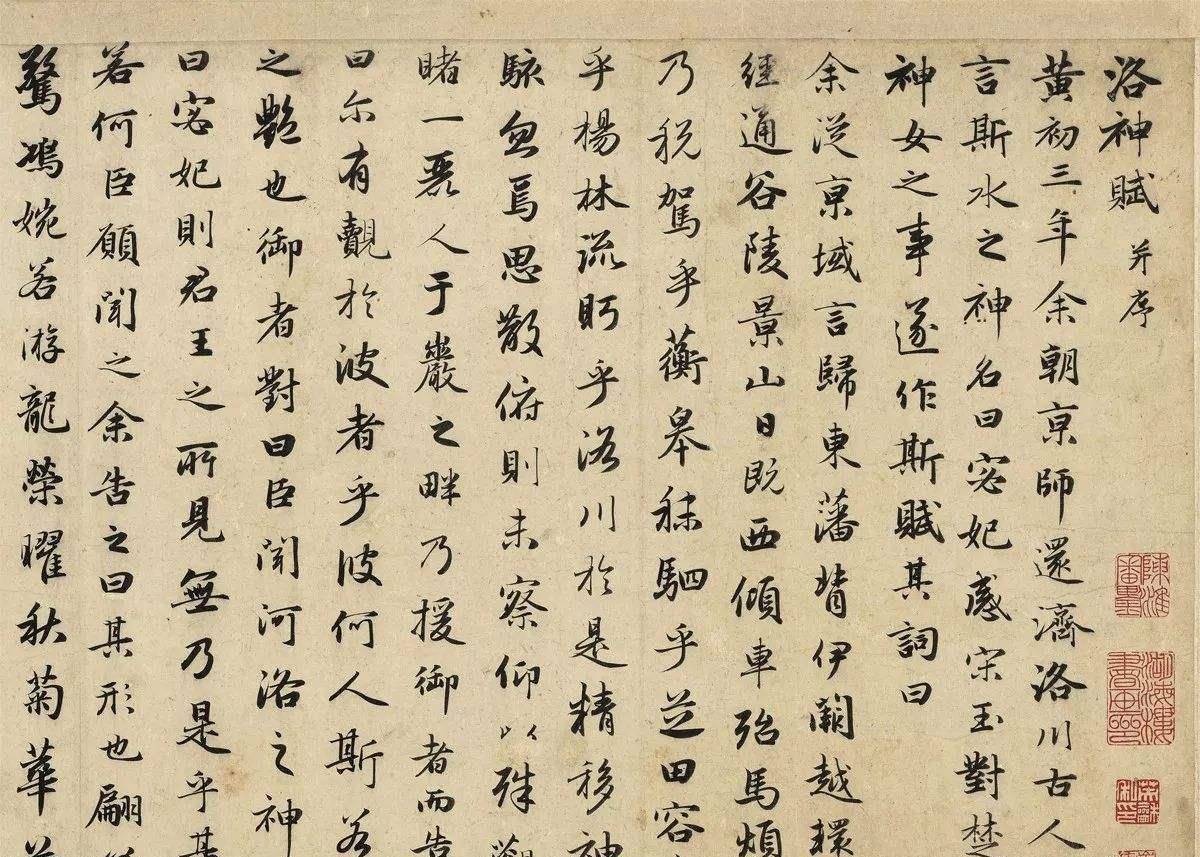 洛神賦 并序
黄初三年余朝京師還濟洛川古人
言斯水之神名曰宓妃感宋玉對楚
神女之事遂作斯賦其詞曰
余従京域言歸東藩背伊闕越轘
経通谷陵景山日既西傾車殆馬煩
乃税駕乎蘅皋秣駟乎芝田容
乎楊林流眄乎洛川於是精移神
駭忽焉思散俯則未察仰以殊觀
睹一麗人于巖之畔乃援御者而告
曰尔有覿於彼者乎彼何人斯若
之艷也御者對曰臣聞河洛之神
曰宓妃則君王之所見無乃是乎其
若何臣願聞之余告之曰其形也翩
驚鴻婉若游龍榮曜秋菊華